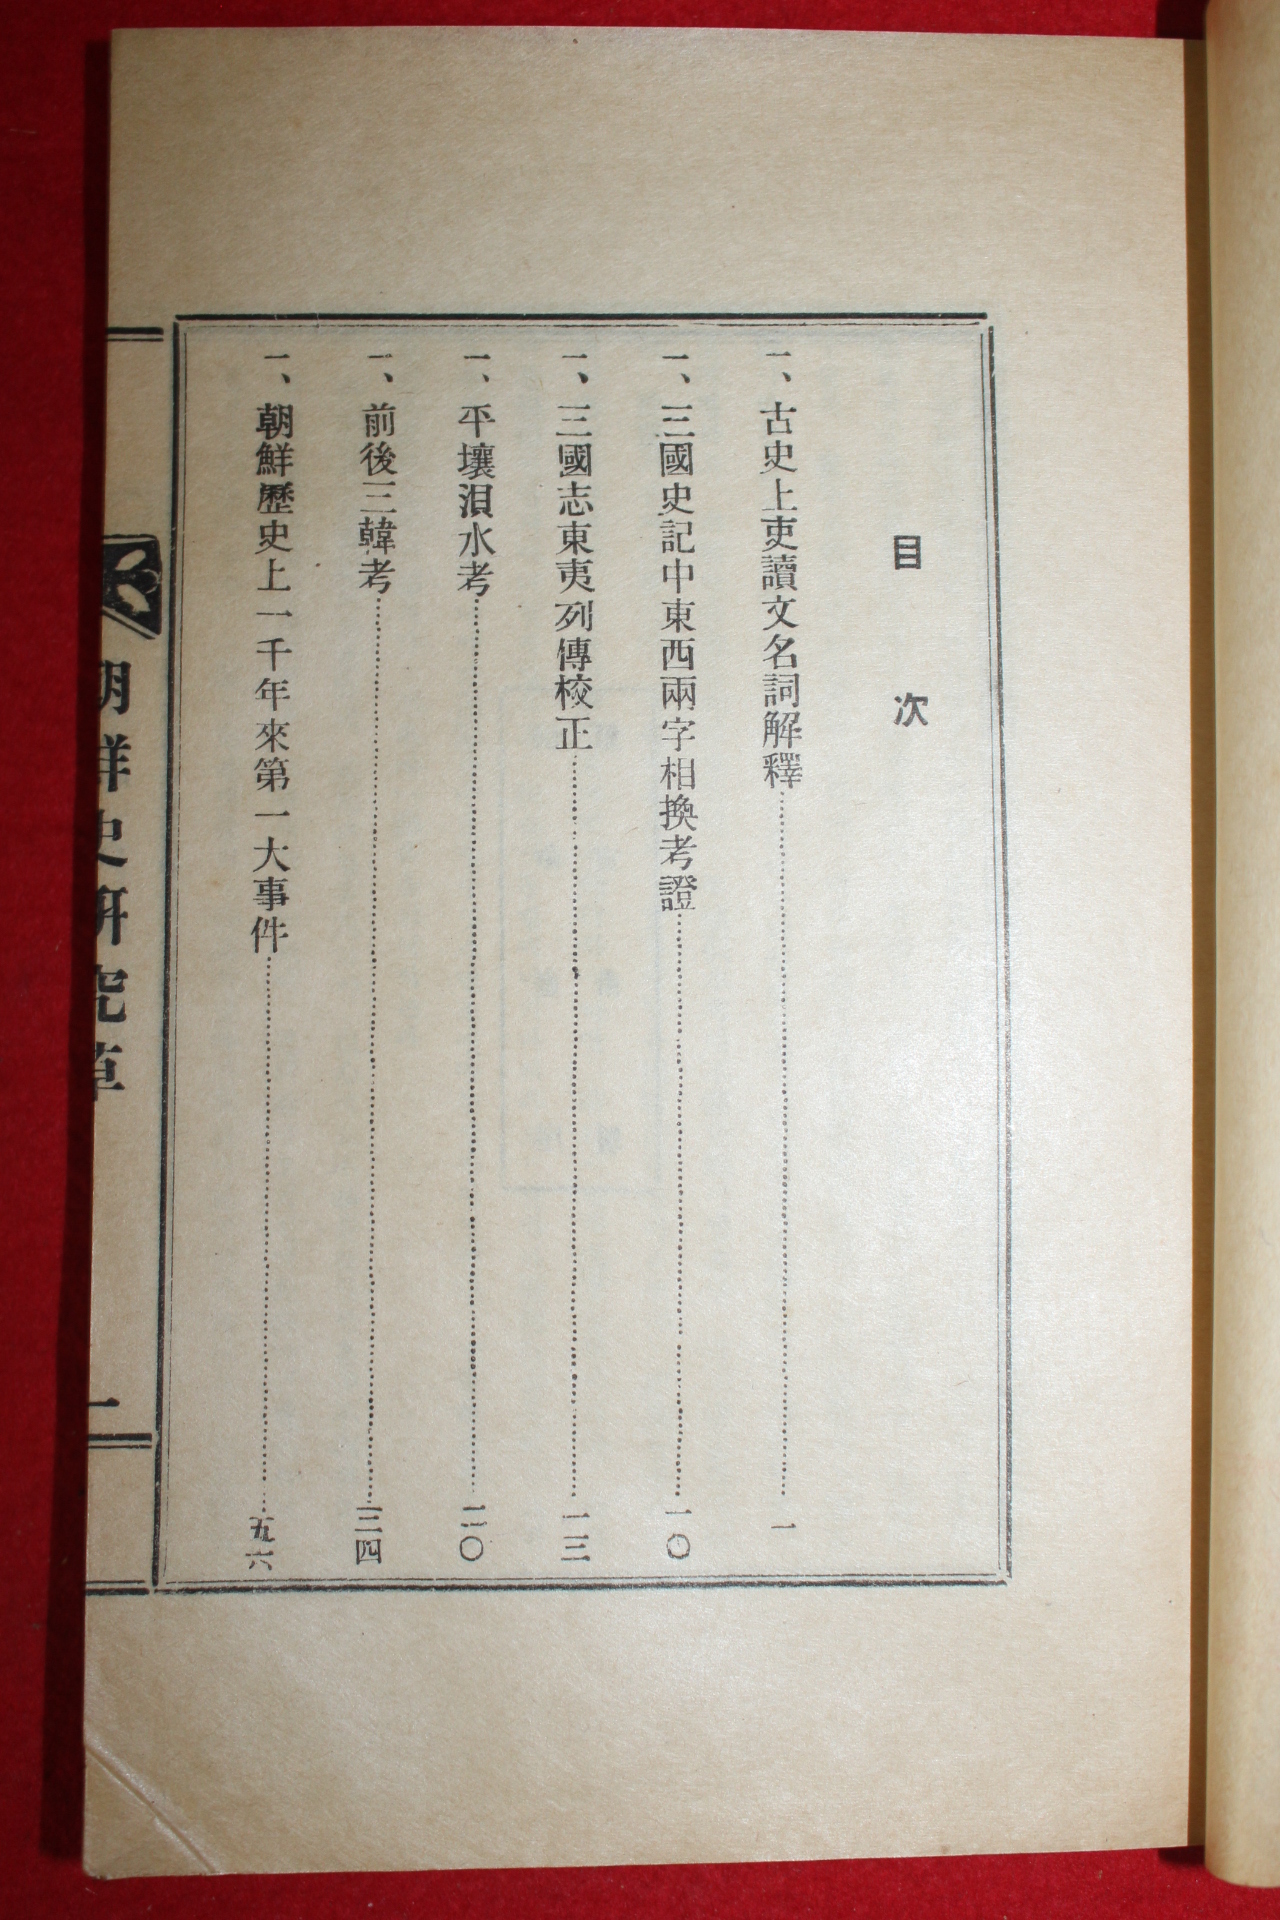 目次
一、古史上吏讀文名詞解釋……一
一、三國史記中東西兩字相換考證……一〇
一、三國志東夷列傳校正……一三
一、平壤浿水考……二〇
一、前後三韓考……三四
一、朝鮮歷史上一千年來第一大事件……五六
朝鮮史硏究草